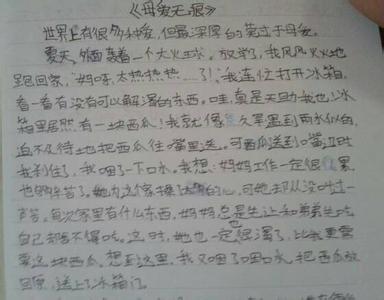 《母爱无限》
世界上有很多种爱,但最深厚的莫过于母爱。
夏天,外面轰着一个大火球。放学了,我风风火火地
跑回家,"妈呀,太热热热……了!"我连忙打开冰箱,
看一看有没有可以解渴的东西。哇,真是天助我也!冰
箱里居然有一块西瓜!我就像久旱遇到雨水似的,
迫不及待地把西瓜往嘴里送。可西瓜送到嘴边时
我刹住了,我咽了一下口水。我想:妈妈工作一定很累,
也够辛苦了。她为这个家操了的心,可她却从没叶过一
声苦。每次家里有什么东西,妈妈总是先让我和弟弟先吃,
自己却舍不得吃。这时,她也一定很渴了,比我更需
要这块西瓜。想到这里,我又咽了咽口水,把西瓜放
回原,送上了冰箱门。